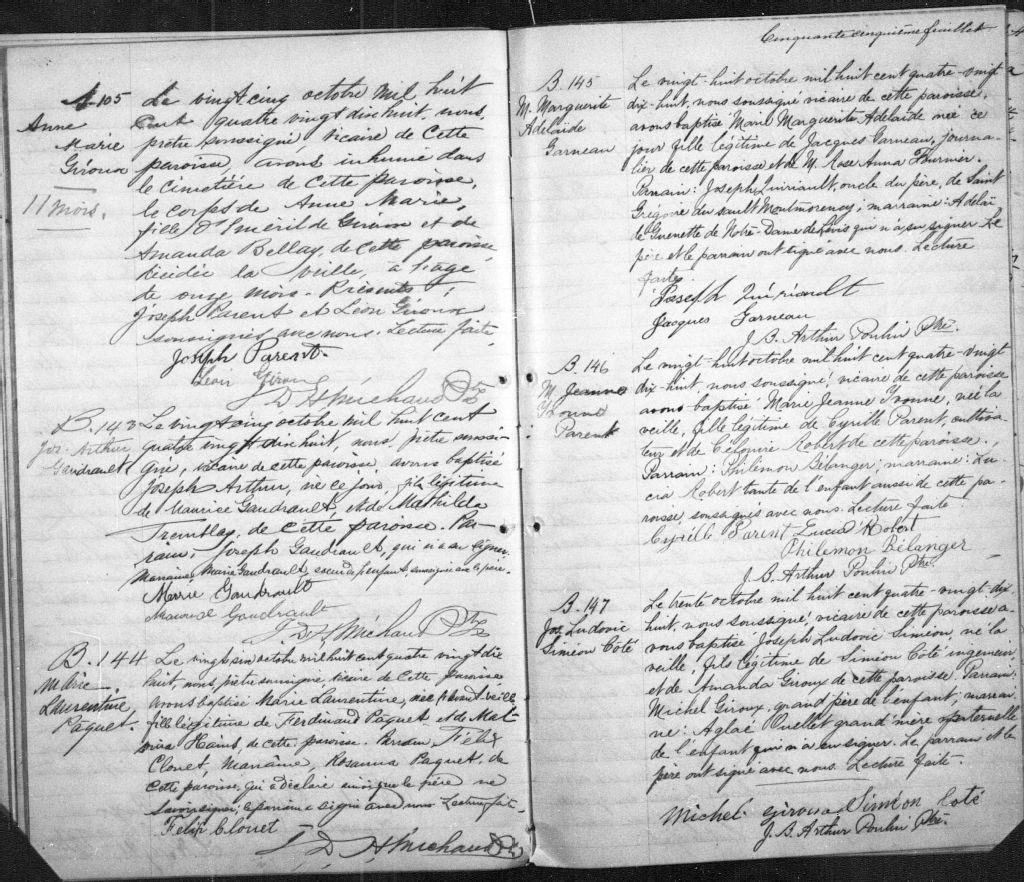 S. 105
Anne
Marie
Giroux
11 mois.
Le vingt cinq octobre mil huit
cent quatre vingt dix huit, nous,
prêtre soussigné, vicaire de cette
paroisse avons inhumé dans
le cimetière de cette paroisse,
le corps de Anne Marie,
fille d' de Giroux et de
Amanda Bellay, de cette paroisse,
décédée la veille, à l'age
de onze mois. Présents:
Joseph Parent et Léon Giroux
soussignés avec nous. Lecture faite.
Joseph Parent.
Léon Giroux
J. D. H. Michaud Ptre
B. 143
Jos. Arthur
Gaudrault
Le vingt cinq octobre mil huit cent
quatre vingt dix huit, nous, prêtre soussi-
gné, vicaire de cette paroisse, avons baptisé
Joseph Arthur, né ce jour, fils légitime
de Maurice Gaudrault, et de Mathilda
Tremblay, de cette paroisse. Par-
rain, Joseph Gaudrault, qui n'a su signer,
Marraine Marie Gaudrault, soeur de l'enfant soussignée avec le père.
Marie Gaudrault
Maurice Gaudrault
J. D. H. Michaud Ptre
B. 144
Marie
Laurentine
Paquet.
Le vingt six octobre mil huit cent quatre vingt dix
huit, nous, prêtre soussigné, vicaire de cette paroisse
avons baptisé Marie Laurentine, née veille
fille légitime de Ferdinand Paquet et de Mal-
vina Hains, de cette paroisse. Parrain, Félix
Clouet, Marraine, Rosanna Paquet, de
cette paroisse, qui a déclaré ainsi que le père ne
savoir signer; le parrain a signé avec nous. Lecture faite.
Felix Clouet
J. D. H. Michaud Ptre
Cinquante cinquième feuillet
B. 145
M. Marguerite
Adelaide
Garneau
Le vingt-huit octobre mil huit cent quatre-vingt
dix-huit, nous soussigné vicaire de cette paroisse,
avons baptisé Marie Marguerite Adelaide née ce
jour fille légitime de Jacques Garneau, journa-
lier de cette paroisse et de M. Rose Anna Fournier.
Parrain: Joseph Quirriault, oncle du père, de Saint
Grégoire du sault Montmorency; marraine: Adelaï-
de Guenette de Notre-Dame de Lévis qui n'a pu signer. Le
père et le parrain ont signé avec nous. Lecture
faite.
Joseph Quérriault
Jacques Garneau
J. B. Arthur Poulin Ptre.
B. 146
M. Jeanne
Yvonne
Parent
Le vingt-huit octobre mil huit cent quatre-vingt
dix-huit, nous soussigné vicaire de cette paroisse
avons baptisé Marie Jeanne Yvonne, née la
veille, fille légitime de Cyrille Parent, cultiva-
teur et de Célanire Robert de cette paroisse.
Parrain: Philémon Bélanger; marraine: Lu-
cia Robert tante de l'enfant aussi de cette pa-
roisse, soussignés avec nous. Lecture faite.
Cyrille Parent Lucia Robert
Philemon Bélanger
J. B. Arthur Poulin Ptre.
B. 147
Jos Ludovic
Siméon Côté
Le trente octobre mil huit cent quatre-vingt-dix-
huit, nous soussigné, vicaire de cette paroisse a-
vons baptisé Joseph Ludovic Siméon, né la
veille, fils légitime de Siméon Côté ingénieur
et de Amanda Giroux de cette paroisse. Parrain:
Michel Giroux, grand'père de l'enfant; marrai-
ne: Aglaé Ouellet grand'mère maternelle
de l'enfant qui n'a su signer. Le parrain et le
père ont signé avec nous. Lecture faite.
Michel giroux Siméon Coté
J. B. Arthur Poulin Ptre.